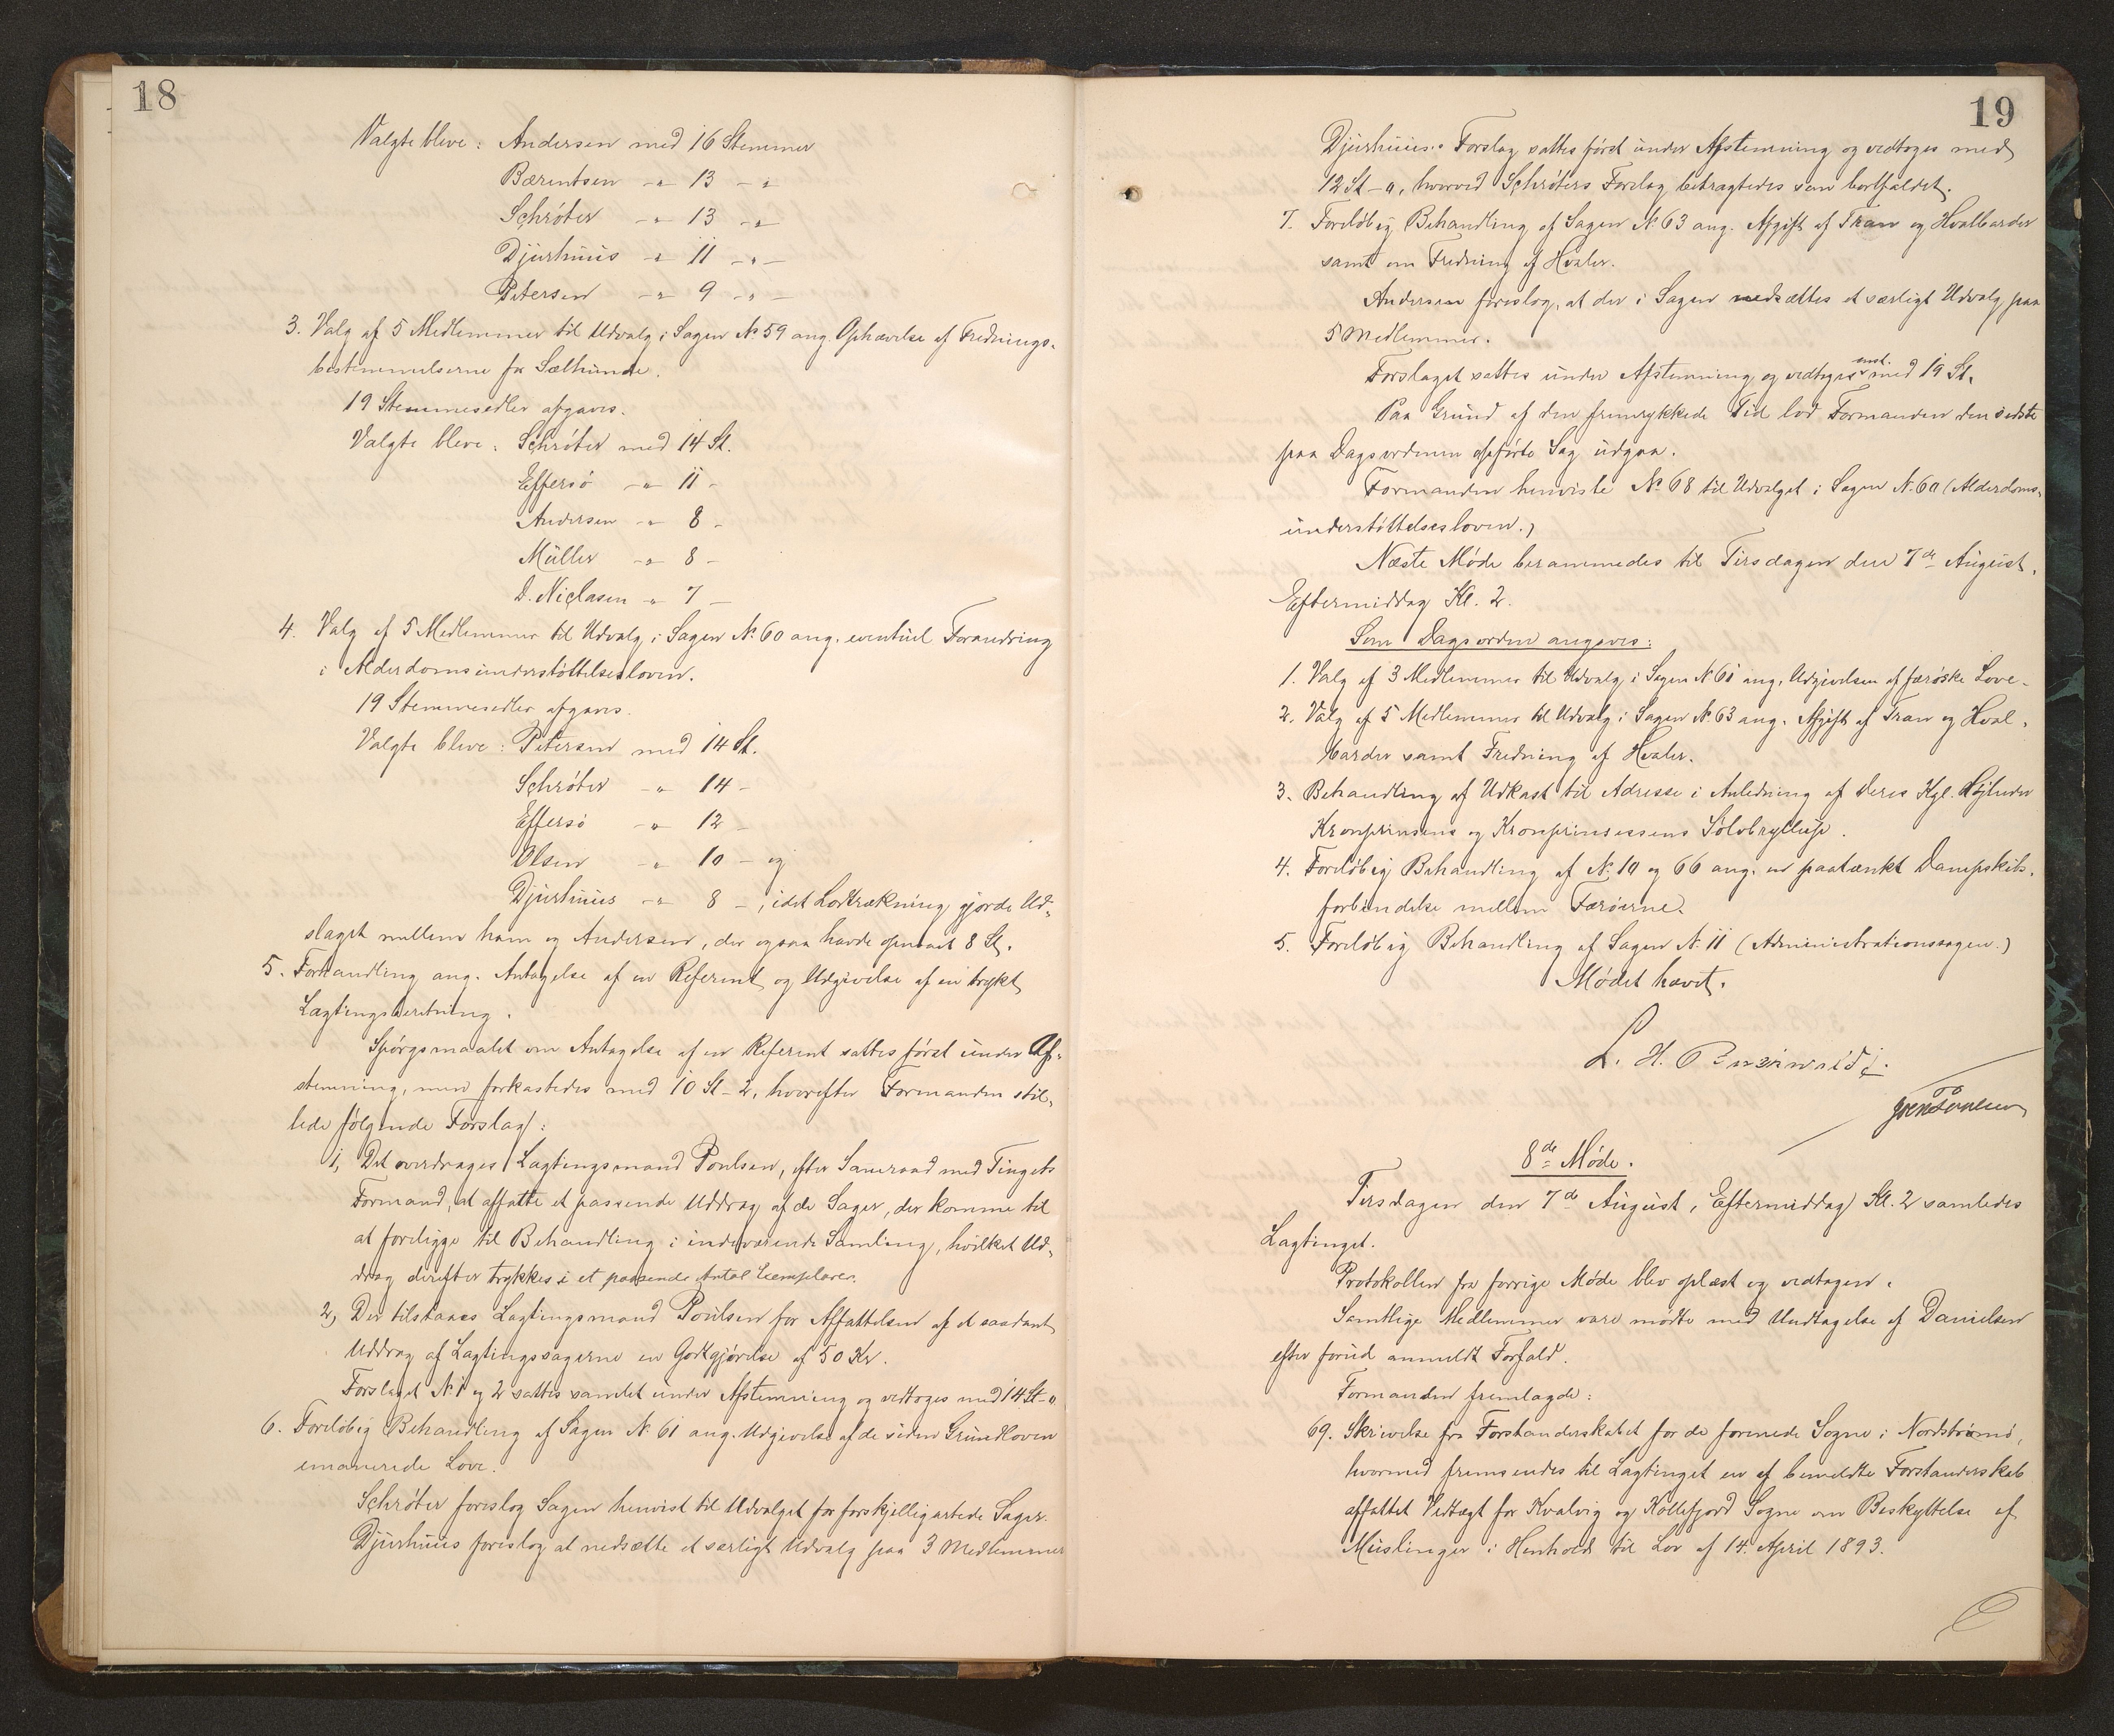 18
Valgte bleve: Andersen med 16 Stemmer
Bærentsen -"- 13 -"-
Schrøter -"- 13 -"-
Djurhuus -"- 11 -"-
Petersen -"- 9 -"-
3. Valg af 5 Medlemmer til Udvalg i Sagen No 59 ang. Ophævelse af Frednings-
bestemmelserne for Sælhunde.
19 Stemmesedler afgaves.
Valgte bleve: Schrøter med 14 St.
Effersö -"- 11 -
Andersen -"- 8 -
Müller -"- 8 -
D. Niclasen -"- 7 -
4. Valg af 5 Medlemmer til Udvalg i Sagen No 60 ang. eventuel Forandring
i Alderdomsunderstøttelsesloven.
19 Stemmesedler afgaves.
Valgte bleve: Petersen med 14 St.
Schrøter -"- 14 -
Effersö -"- 12 -
Olsen -"- 10 - og
Djurhuus -"- 8 -, idet Lodtrækning gjorde Ud-
slaget mellem ham og Andersen, der ogsaa havde opnaaet 8 St.
5. Forhandling ang. Antagelse af en Referent og Udgivelse af en trykt
Lagtingsberetning.
Spørgsmaalet om Antagelse af en Referent sattes først under Af-
stemning, men forkastedes med 10 St - 2, hvorefter Formanden stil-
lede følgende Forslag:
1, Det overdrages Lagtingsmand Poulsen, efter Samraad med Tingets
Formand, at affatte et passende Uddrag af de Sager, der komme til
at foreligge til Behandling i indeværende Samling, hvilket Ud-
drag derefter trykkes i et passende Antal Exemplarer.
2, Der tilstaaes Lagtingsmand Poulsen for Affattelsen af et saadant
Uddrag af Lagtingssagerne en Godtgjørelse af 50 Kr.
Forslaget No 1 og 2 sattes samlet under Afstemning og vedtoges med 14 St - 0
6. Foreløbig Behandling af Sagen No 61 ang. Udgivelse af de siden Grundloven
emanerede Love.
Schrøter foreslog Sagen henvist til Udvalget for forskjelligartede Sager.
Djurhuus foreslog at nedsætte et særligt Udvalg paa 3 Medlemmer
19
Djurhuus's Forslag sattes først under Afstemning og vedtoges med
12 St - 0, hvorved Schrøters Forslag betragtedes som bortfaldet.
7. Foreløbig Behandling af Sagen No 63 ang. Afgift af Tran og Hvalbarder
samt om Fredning af Hvaler.
Andersen foreslog, at der i Sagen nedsættes et særligt Udvalg paa
5 Medlemmer.
Forslaget sattes under Afstemning og vedtoges enst. med 19 St.
Paa Grund af den fremrykkede Tid lod Formanden den sidste
paa Dagsordenen opførte Sag udgaa.
Formanden henviste No 68 til Udvalget i Sagen No 60 (Alderdoms-
understøttelsesloven.)
Næste Møde berammedes til Tirsdagen den 7de August,
Eftermiddag Kl. 2.
Som Dagsorden angaves:
1. Valg af 3 Medlemmer til Udvalg i Sagen No 61 ang. Udgivelsen af færøske Love.
2. Valg af 5 Medlemmer til Udvalg i Sagen No 63 ang. Afgift af Tran og Hval-
barder samt Fredning af Hvaler.
3. Behandling af Udkast til Adresse i Anledning af Deres Kgl. Højheder
Kronprinsens og Kronprinsessens Sølvbryllup.
4. Foreløbig Behandling af No 10 og 66 ang. en paatænkt Dampskibs-
forbindelse mellem Færøerne.
5. Foreløbig Behandling af Sagen No 11 (Administrationssagen.)
Mødet hævet.
L. H.
8de Møde.
Tirsdagen den 7de August, Eftermiddag Kl. 2 samledes
Lagtinget.
Protokollen fra forrige Møde blev oplæst og vedtagen.
Samtlige Medlemmer vare mødte med Undtagelse af Danielsen
efter forud anmeldt Forfald.
Formanden fremlagde:
69. Skrivelse fra Forstanderskabet for de forenede Sogne i Nordstrømö,
hvormed fremsendes til Lagtinget en af bemeldte Forstanderskab
affattet Vedtægt for Kvalvig og Kollefjord Sogne om Beskyttelse af
Muslinger i Henhold til Lov af 14. April 1893.